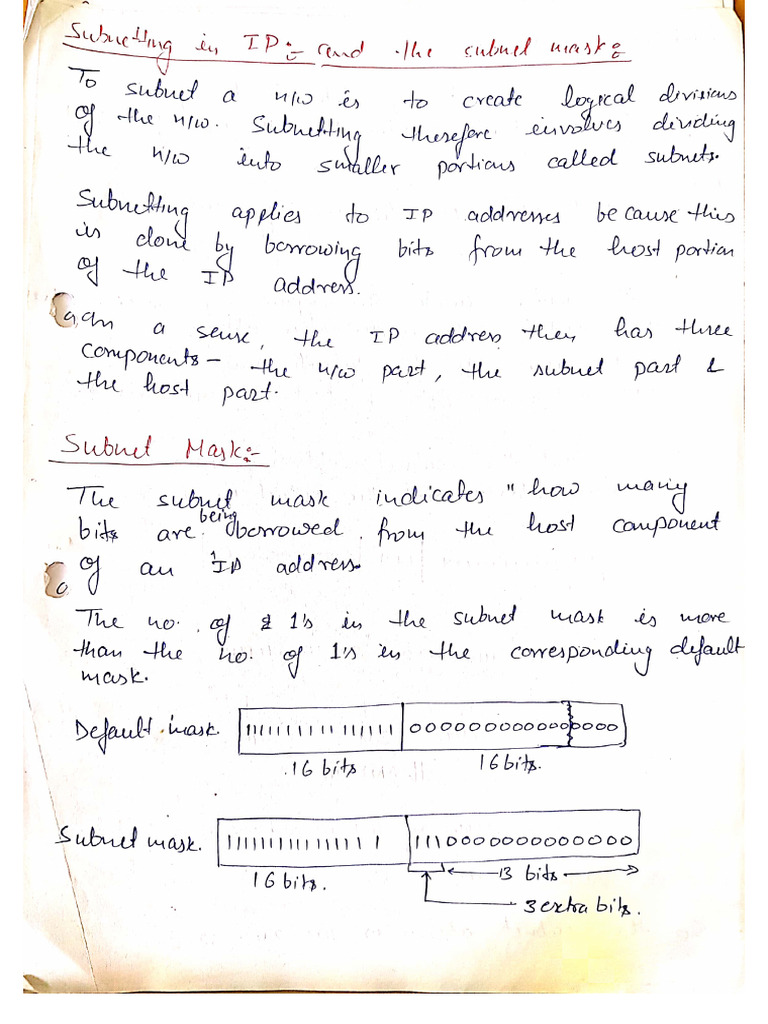 Subnetting in IP:- and the subnet mask:-
To subnet a n/w is to create logical divisions
of the n/w. Subnetting therefore involves dividing
the n/w into smaller portions called subnets.
Subnetting applies to IP addresses because this
is done by borrowing bits from the host portion
of the IP address.
In a sense, the IP address then has three
components - the n/w part, the subnet part &
the host part.
Subnet Mask:-
The subnet mask indicates "how many
bits are being borrowed from the host component
of an IP address.
The no. of 1's in the subnet mask is more
than the no. of 1's in the corresponding default
mask.
Default mask. 1111111111111111 0000000000000000
16 bits 16 bits.
Subnet mask. 1111111111111111 1110000000000000
16 bits. 13 bits
3 extra bits.